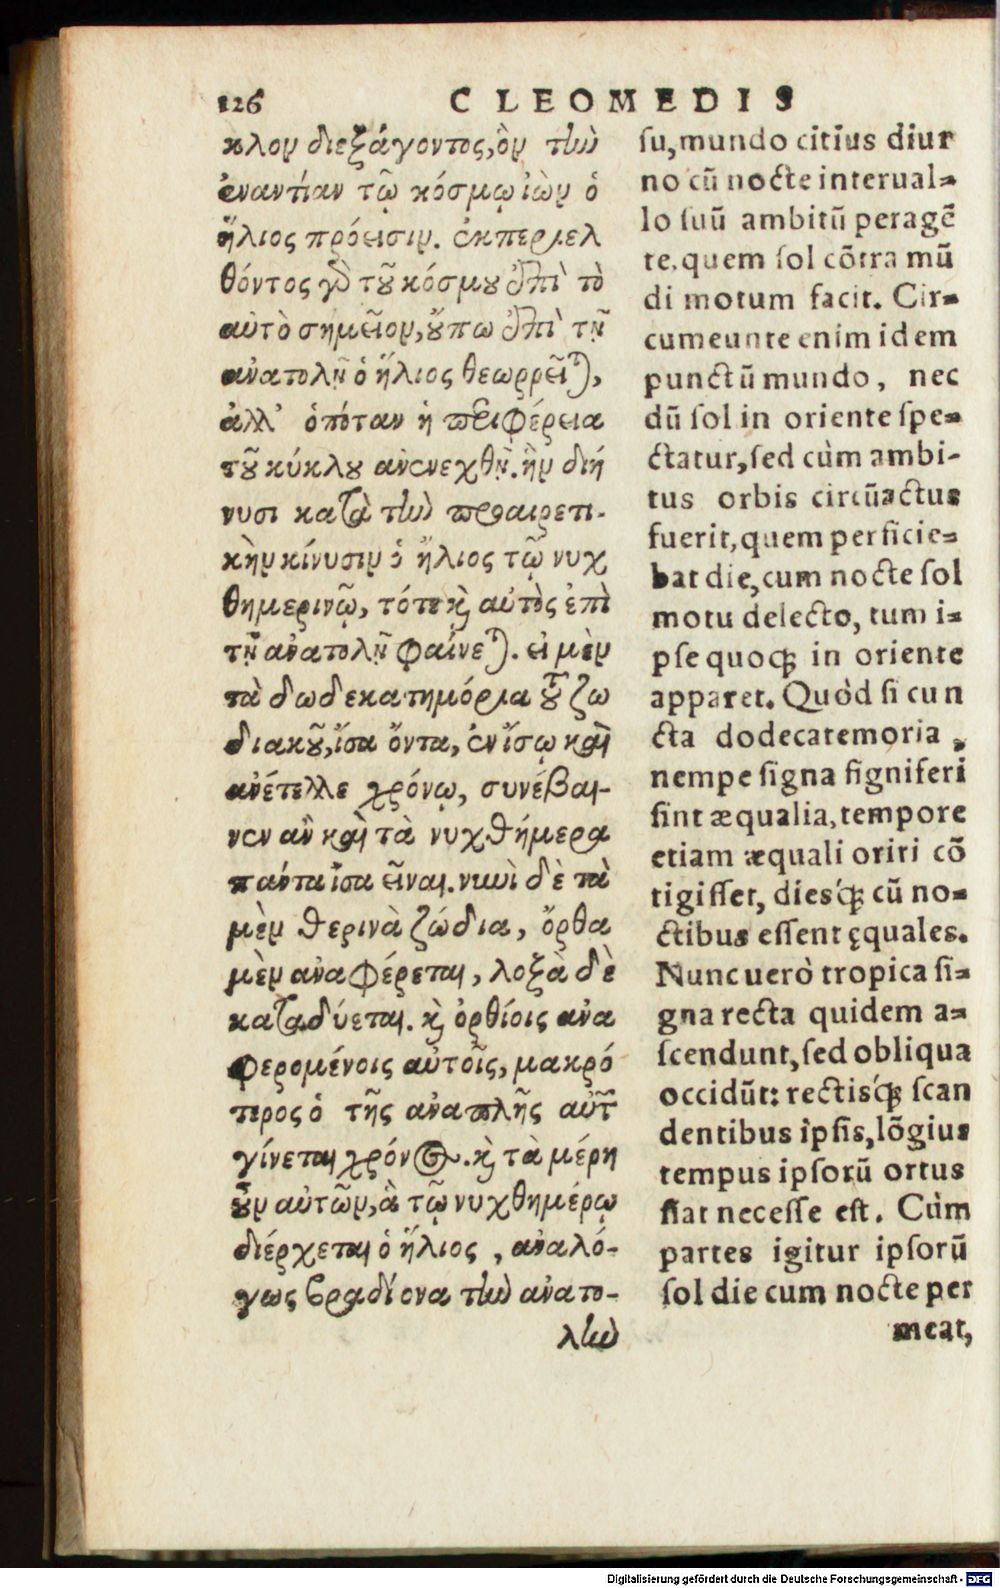 126 CLEOMEDIS
κλου διεξάγοντος, ὃν τὴν
ἐναντίαν τῷ κόσμῳ ἰὼν ὁ
ἥλιος πρόεισιν. ἐκπεριελ
θόντος γὰρ τοῦ κόσμου ἐπὶ τὸ
αὐτὸ σημεῖον, οὔπω ἐπὶ τῇ
ἀνατολῇ ὁ ἥλιος θεωρεῖται,
ἀλλ' ὁπόταν ἡ περιφέρεια
τοῦ κύκλου ἀνενεχθῇ. ἣν διή
νυσι κατὰ τὴν προαιρετι-
κὴν κίνυσιν ὁ ἥλιος τῷ νυχ
θημερινῷ, τότε καὶ αὐτὸς ἐπὶ
τῇ ἀνατολῇ φαίνεται. εἰ μὲν
τὰ δωδεκατημόρια τοῦ ζω
διακοῦ, ἴσα ὄντα, ἐν ἴσῳ καὶ
ἀνέτελλε χρόνῳ, συνέβαι-
νεν ἂν καὶ τὰ νυχθήμερα
πάντα ἴσα εἶναι. νυνὶ δὲ τὰ
μὲν θερινὰ ζώδια, ὄρθα
μὲν ἀναφέρεται, λοξὰ δὲ
καταδύεται. καὶ ὀρθίοις ἀνα
φερομένοις αὐτοῖς, μακρό
τερος ὁ τῆς ἀνατολῆς αὐτῶν
γίνεται χρόνος. καὶ τὰ μέρη
οὖν αὐτῶν, ἃ τῷ νυχθημέρῳ
διέρχεται ὁ ἥλιος, ἀναλό-
γως βραδίονα τὴν ἀνατο-
λὴν
su, mundo citius diur
no cũ nocte interual=
lo suũ ambitũ peragẽ
te, quem sol cõtra mũ
di motum facit. Cir=
cumeunte enim idem
punctũ mundo, nec
dũ sol in oriente spe=
ctatur, sed cùm ambi-
tus orbis circũactus
fuerit, quem perficie=
bat die, cum nocte sol
motu delecto, tum i=
pse quoq; in oriente
apparet. Quòd si cun
cta dodecatemoria,
nempe signa signiferi
sint æqualia, tempore
etiam æquali oriri cõ
tigisset, diesq́; cũ no=
ctibus essent ęquales.
Nunc uerò tropica si=
gna recta quidem a=
scendunt, sed obliqua
occidũt: rectisq́; scan
dentibus ipsis, lõgius
tempus ipsorũ ortus
fiat necesse est. Cùm
partes igitur ipsorũ
sol die cum nocte per
meat,
Digitalisierung gefördert durch die Deutsche Forschungsgemeinschaft - DFG